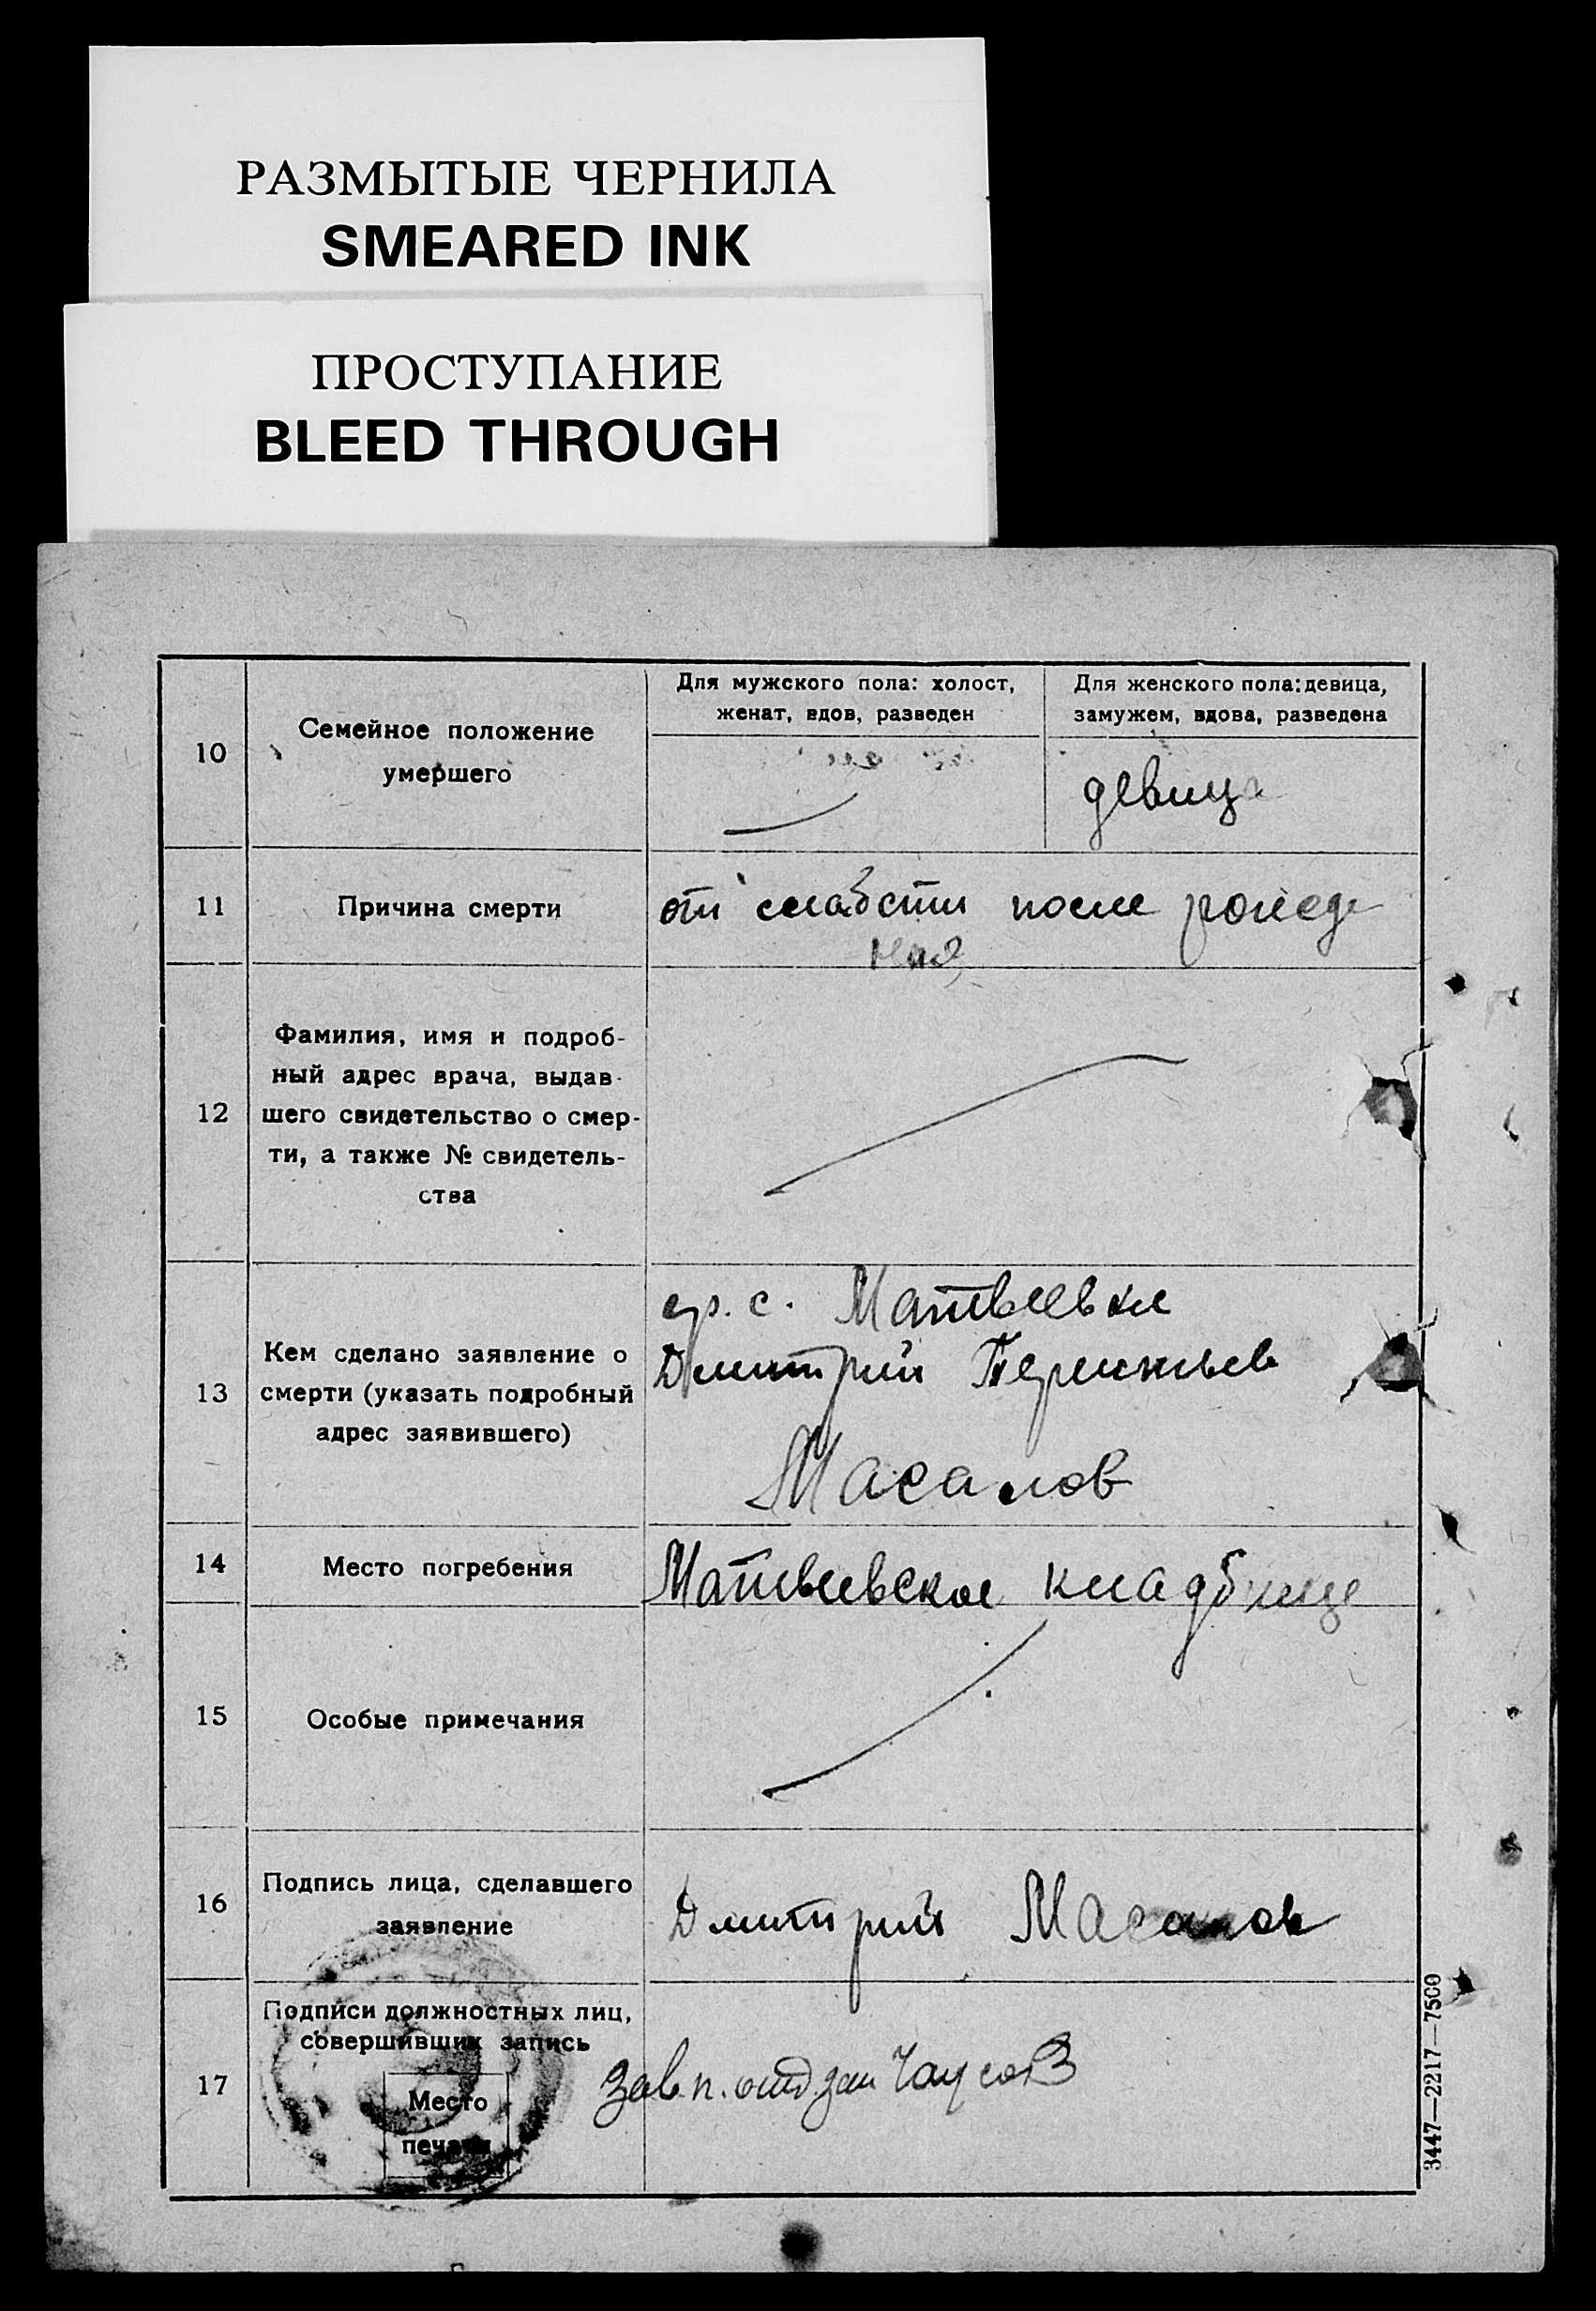 РАЗМЫТЫЕ ЧЕРНИЛА
SMEARED INK
ПРОСТУПАНИЕ
BLEED THROUGH
10
Семейное положение
умершего
Для мужского пола: холост,
женат, вдов, разведен
Для женского пола: девица,
замужем, вдова, разведена
девица
11
Причина смерти
от слабсти после рожде
ния
12
Фамилия, имя и подроб-
ный адрес врача, выдав-
шего свидетельство о смер-
ти, а также № свидетель-
ства
13
Кем сделано заявление о
смерти (указать подробный
адрес заявившего)
гр. с. Матвеевки
Дмитрий
Масалов
14
Место погребения
Матвеевское кладбище
15
Особые примечания
16
Подпись лица, сделавшего
заявление
Дмитрий Масалов
17
Подписи должностных лиц,
совершивших запись
Место
печати
Зав. п. отд. Чаусов
3447—2217—7500